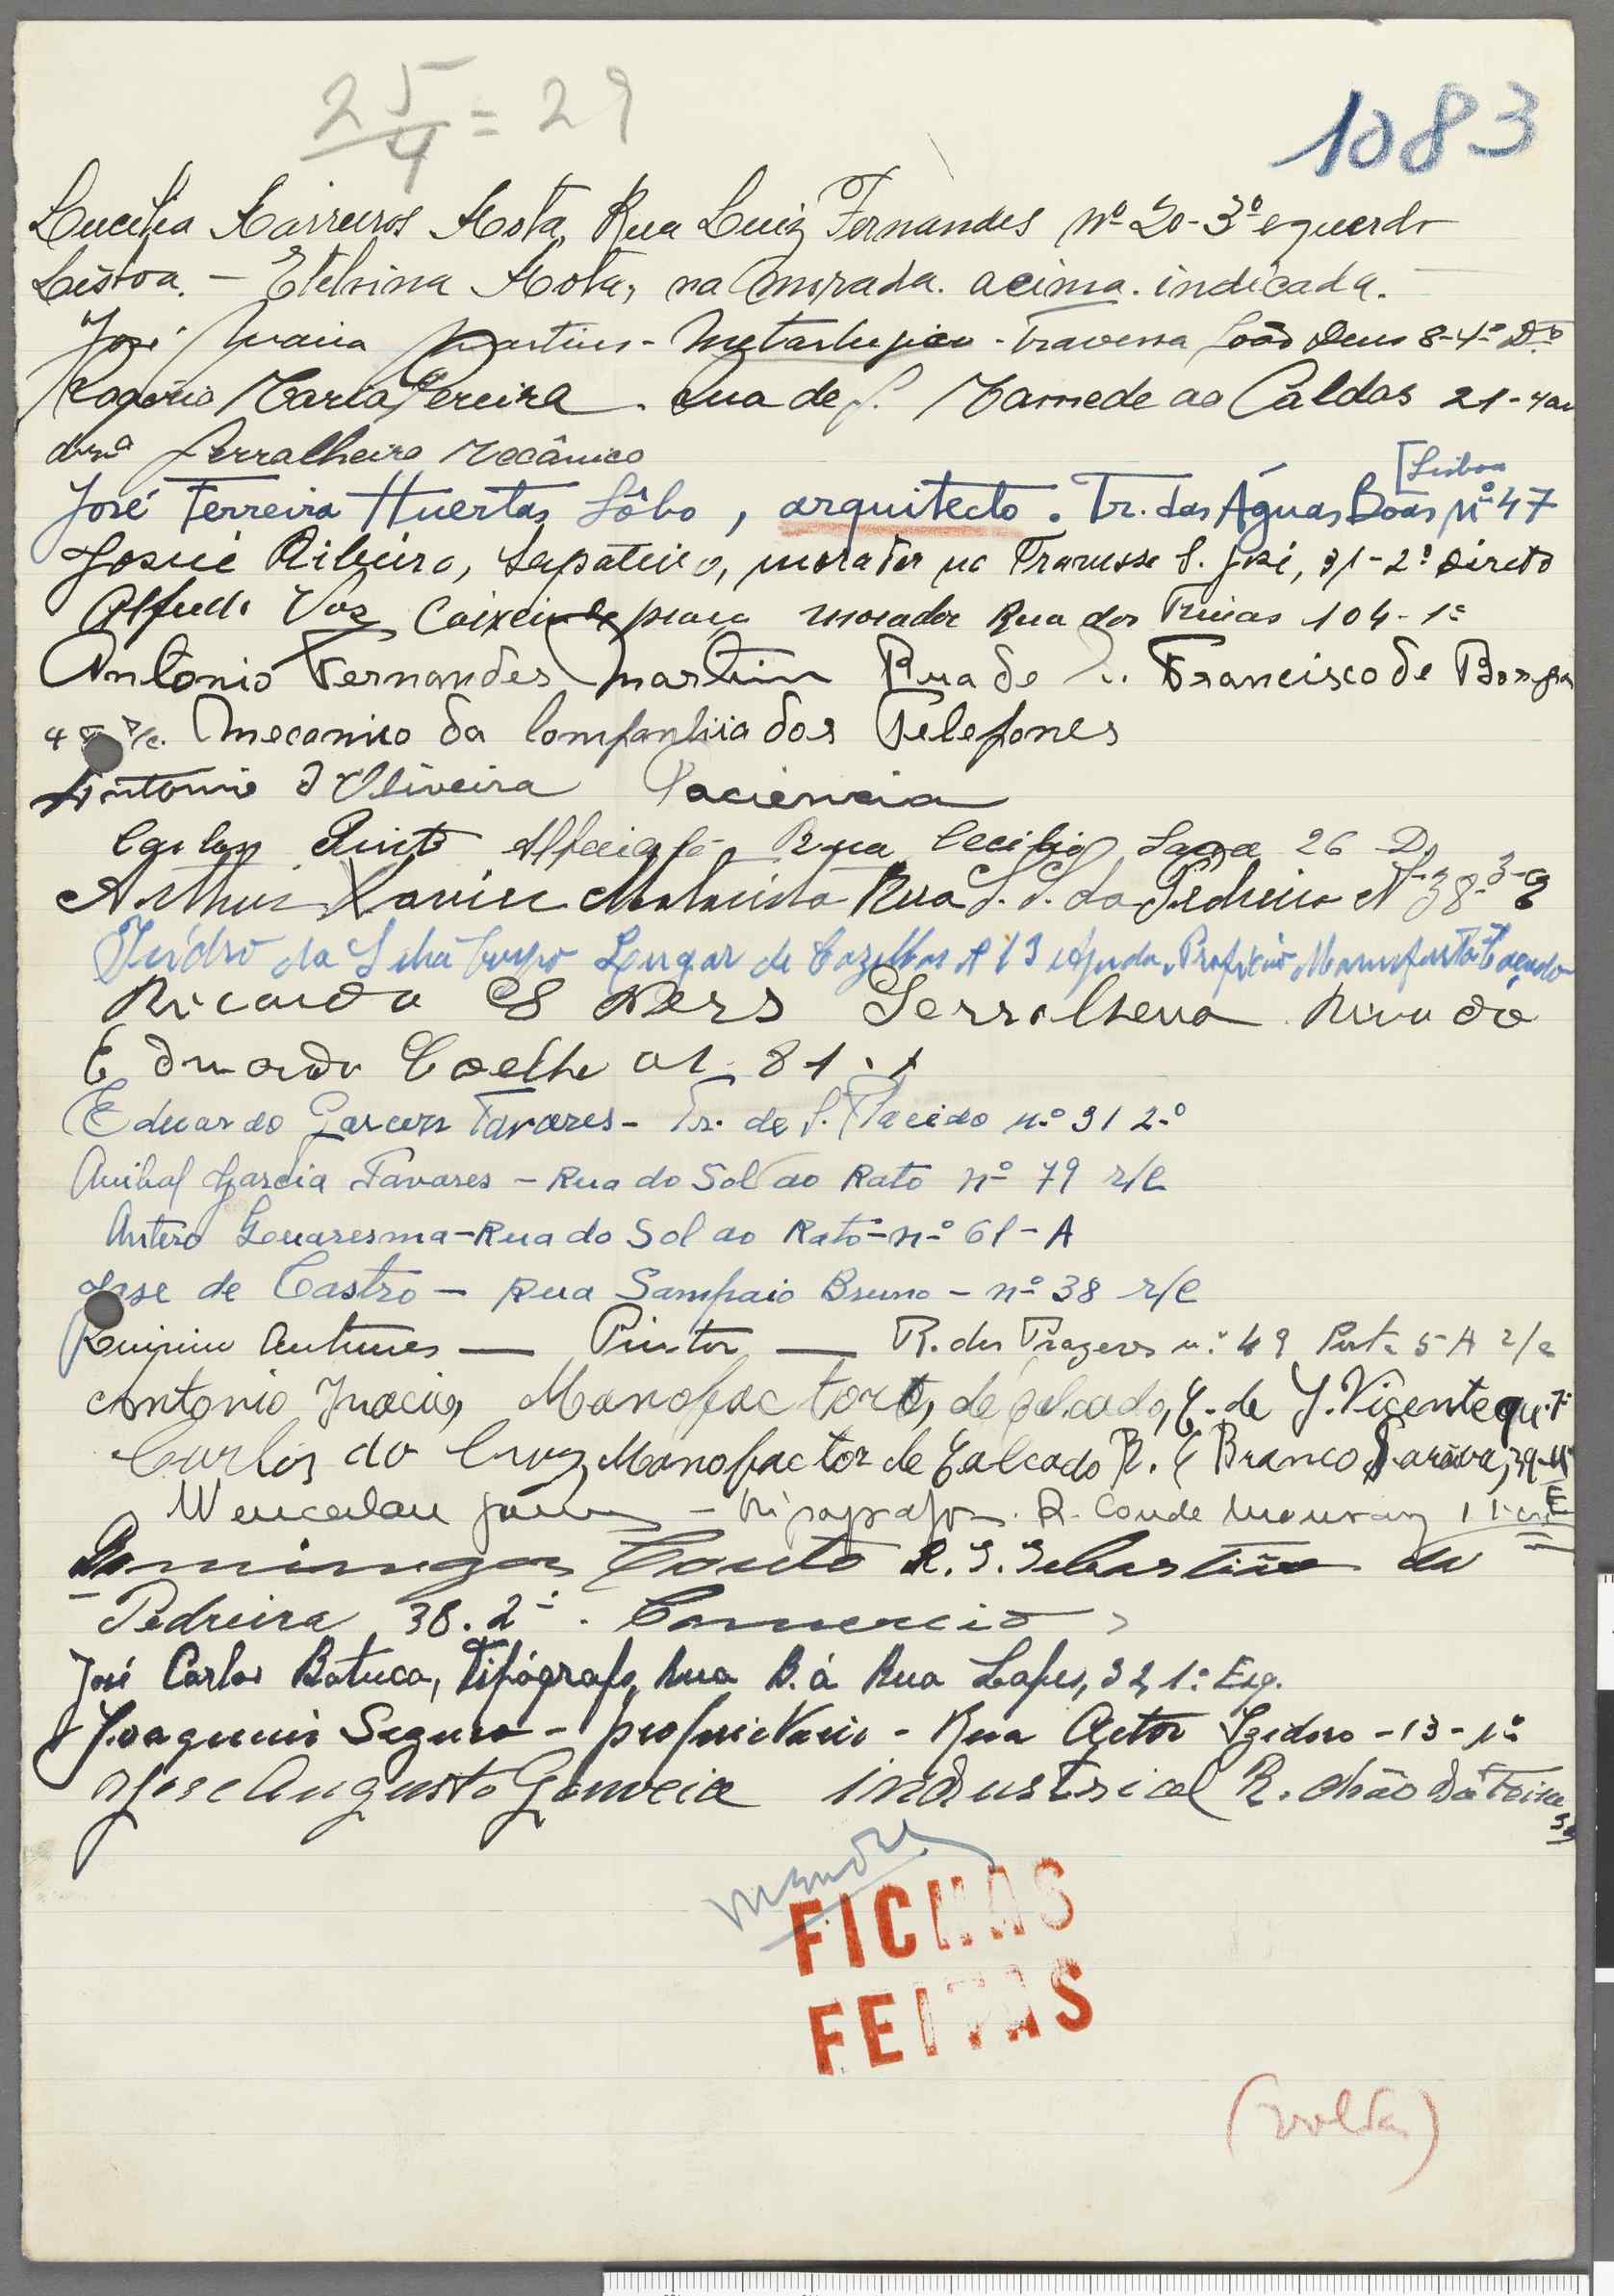 25/4 = 29
1083
Lucilia Mota, Rua Luiz Fernandes nº 20-3º esquerdo
Lisboa. – Etelvina Mota, na morada acima indicada.
José Maria Martins - Metalurgico - Travessa João Deus 8-4º Dtº
Rogério Maria Pereira. Rua de S. Mamede ao Caldas 21-4
Serralheiro Mecânico
[Lisboa
José Ferreira Huertas Lôbo, arquitecto. Tr. das Águas Boas nº 47
Josué Ribeiro, Sapateiro, morador na Travessa S. José, 31-2º Direto
Alfredo Vaz Caixeiro praça morador Rua das Trinas 104-1º
Antonio Fernandes Martins Rua de S. Francisco de Borja
4 r/c. Mecanico da Companhia dos Telefones
Antonio d'Oliveira Paciencia
Carlos Pinto Alfaiate Rua Cecilio Sousa 26 D
Arthur Xavier Rua S. S. da Pedreira Nº 38-3º
Isidro da Silva Lugar de Nº 13 Ajuda
Ricardo Serralheiro Rua do
Eduardo Coelho 81-1
Eduardo Garcia Tavares - Tr. de S. Placido nº 31 2º
Anibal Garcia Tavares - Rua do Sol ao Rato nº 79 r/c
Antero Quaresma - Rua do Sol ao Rato - nº 61 - A
José de Castro - Rua Sampaio Bruno - nº 38 r/c
Quirino Antunes — Pintor — R. dos Prazeres nº 49 Porta 5 A r/c
Antonio Inacio, Manofactor, de calcado, C. de S. Vicente
Carlos da Cruz Manofactor de Calcado R. C Branco Saraiva, 39
Wenceslau - Tipografo. R. Conde Monsaraz 11
Domingos Couto R. S. Sebastião da
Pedreira 38.2º. Comercio
José Carlos Batuca, Tipógrafo, Rua B. á Rua Lapes, 32, 1º Esq.
Joaquim Seguro - proprietario - Rua Actor Izidoro - 13 - 1º
Jose Augusto Gouveia industrial R. Chão da Feira
FICHAS
FEITAS
(volta)